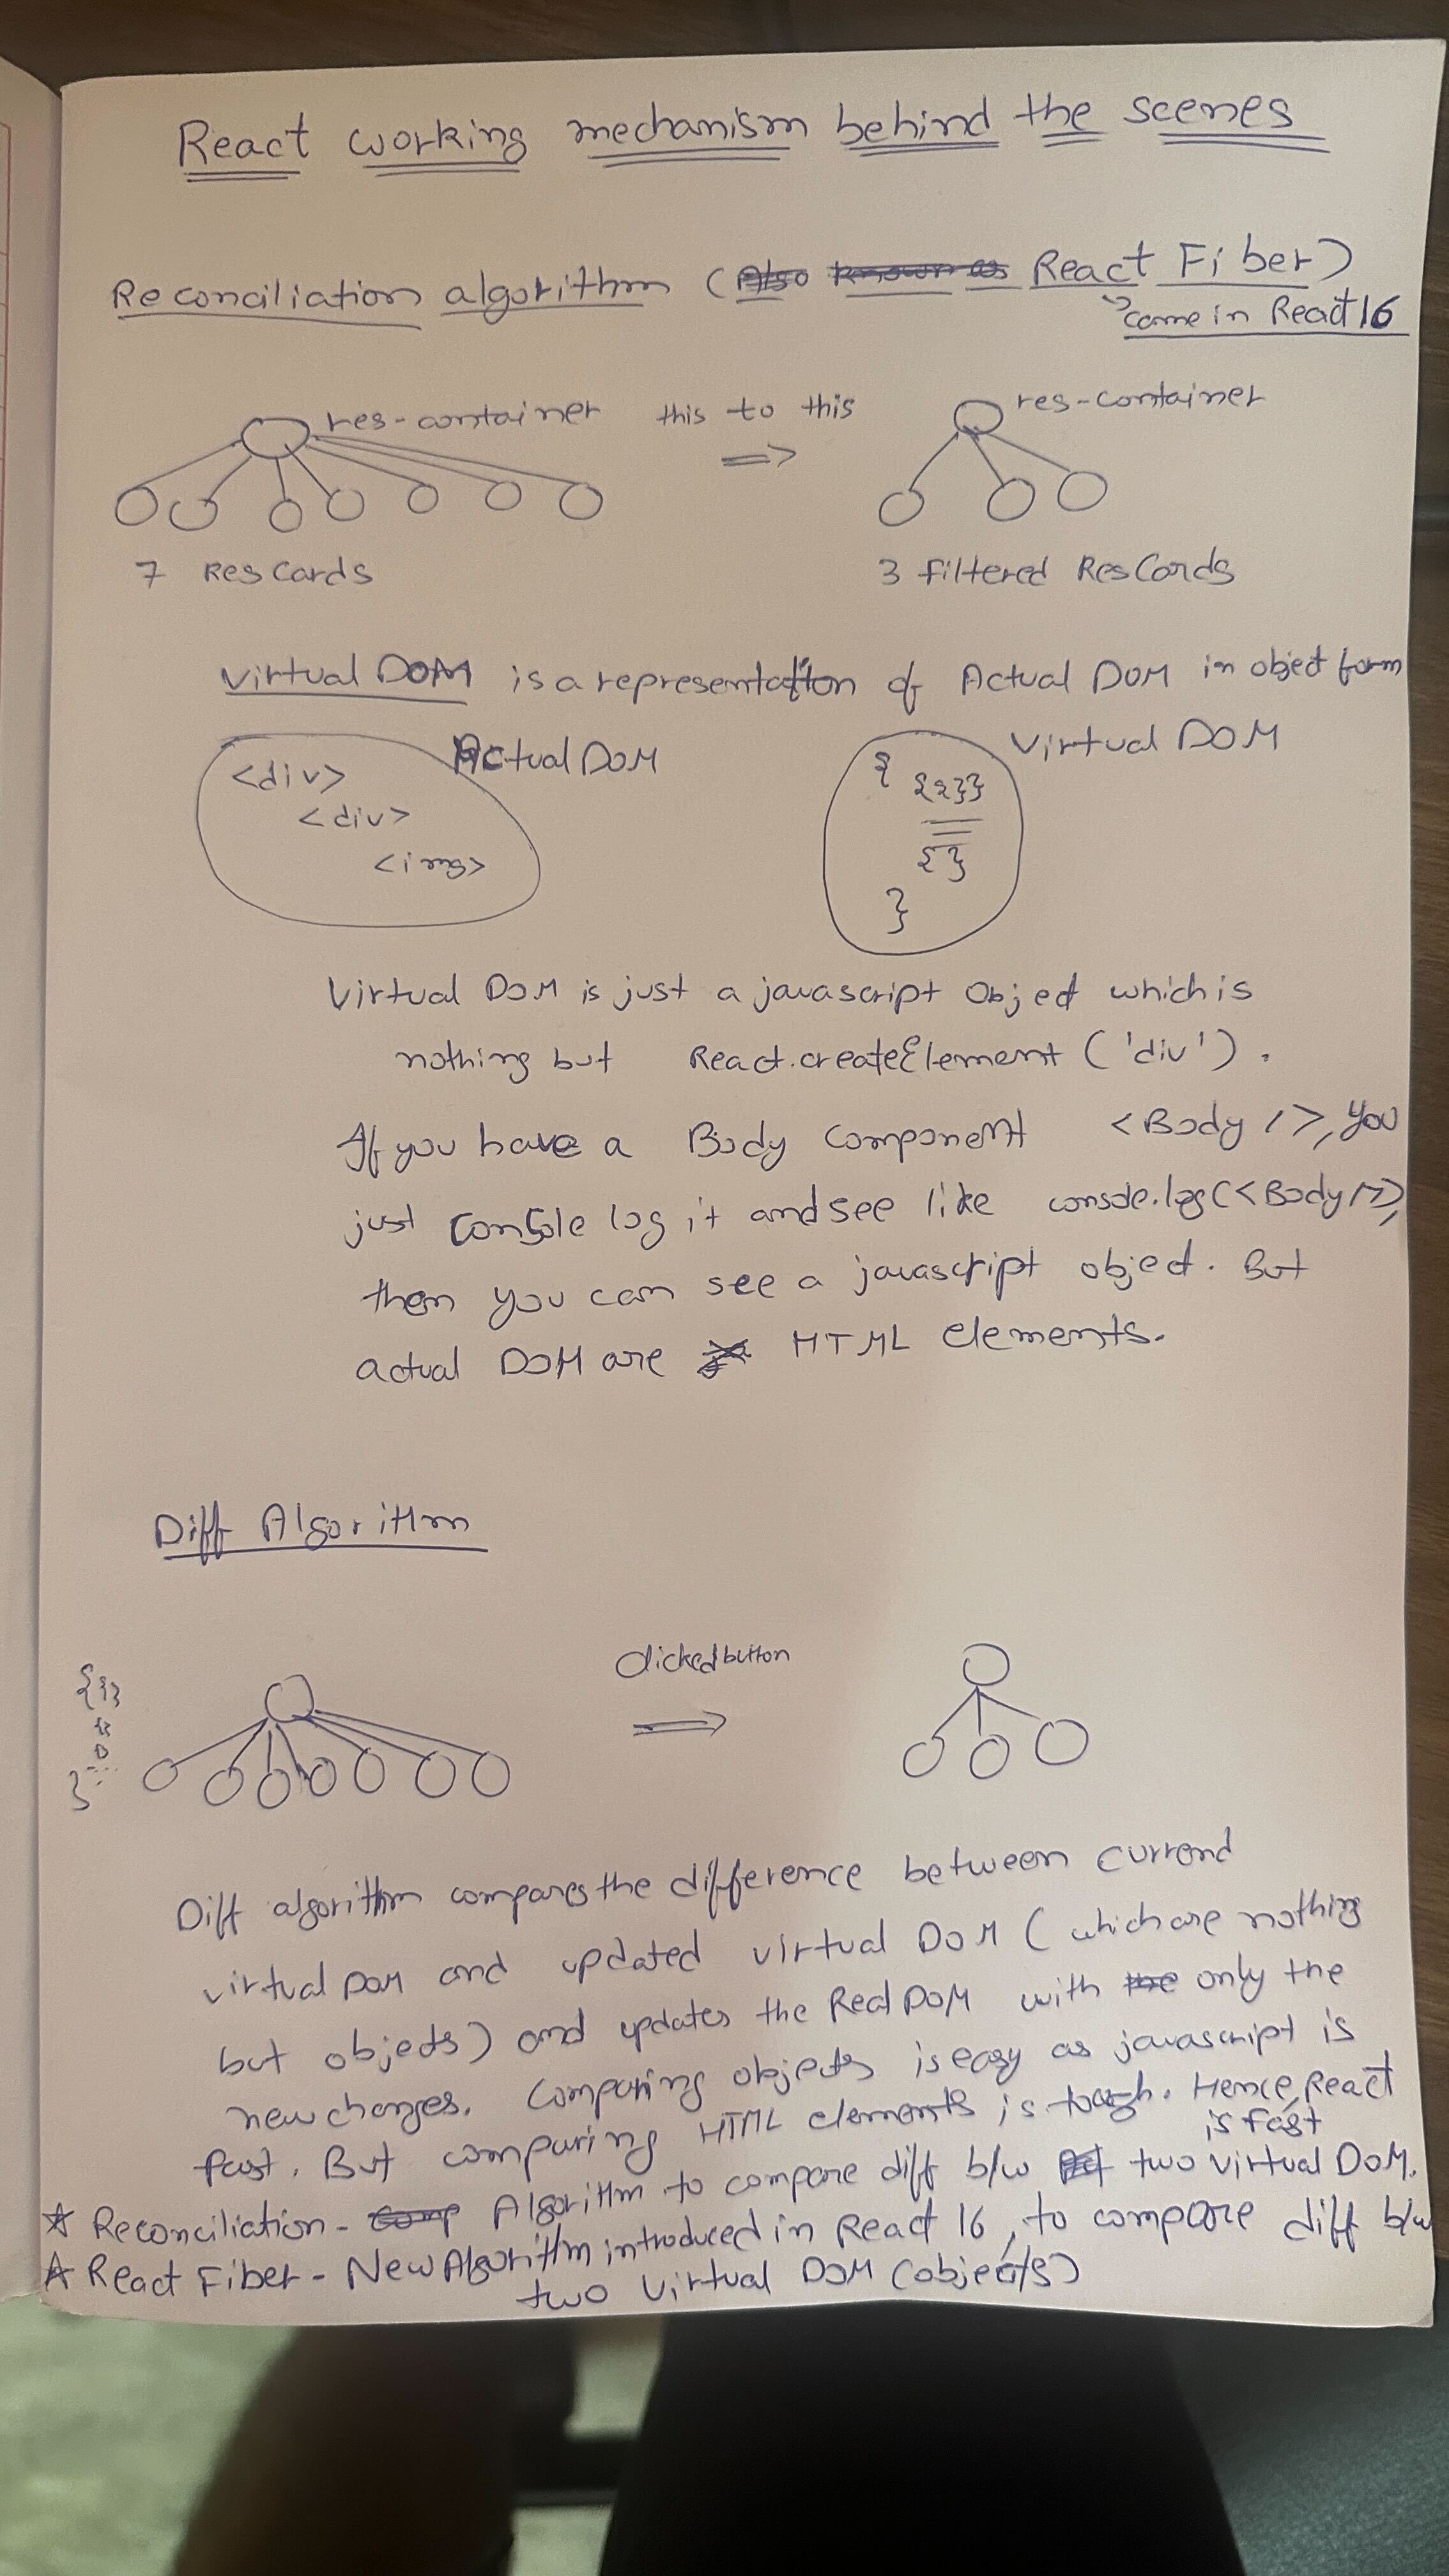 React working mechanism behind the scenes
Reconciliation algorithm (Also known as React Fiber)
came in React 16
res-container this to this res-container
⇒
7 ResCards 3 filtered ResCards
Virtual DOM is a representation of Actual DOM in object form
Actual DOM Virtual DOM
<div>
<div>
<img>
{
{{}}
{}
}
Virtual DOM is just a javascript Object which is
nothing but React.createElement ('div').
If you have a Body Component <Body />, you
just console log it and see like console.log(<Body />),
then you can see a javascript object. But
actual DOM are HTML elements.
Diff Algorithm
Clicked button
⇒
{
}
Diff algorithm compares the difference between current
virtual DOM and updated virtual DOM (which are nothing
but objects) and updates the Real DOM with the only the
new changes. Comparing objects is easy as javascript is
fast. But comparing HTML elements is tough. Hence, React
is fast
☆ Reconciliation - Comp Algorithm to compare diff b/w two virtual DOM.
☆ React Fiber - New Algorithm introduced in React 16, to compare diff b/w
two Virtual DOM (objects)